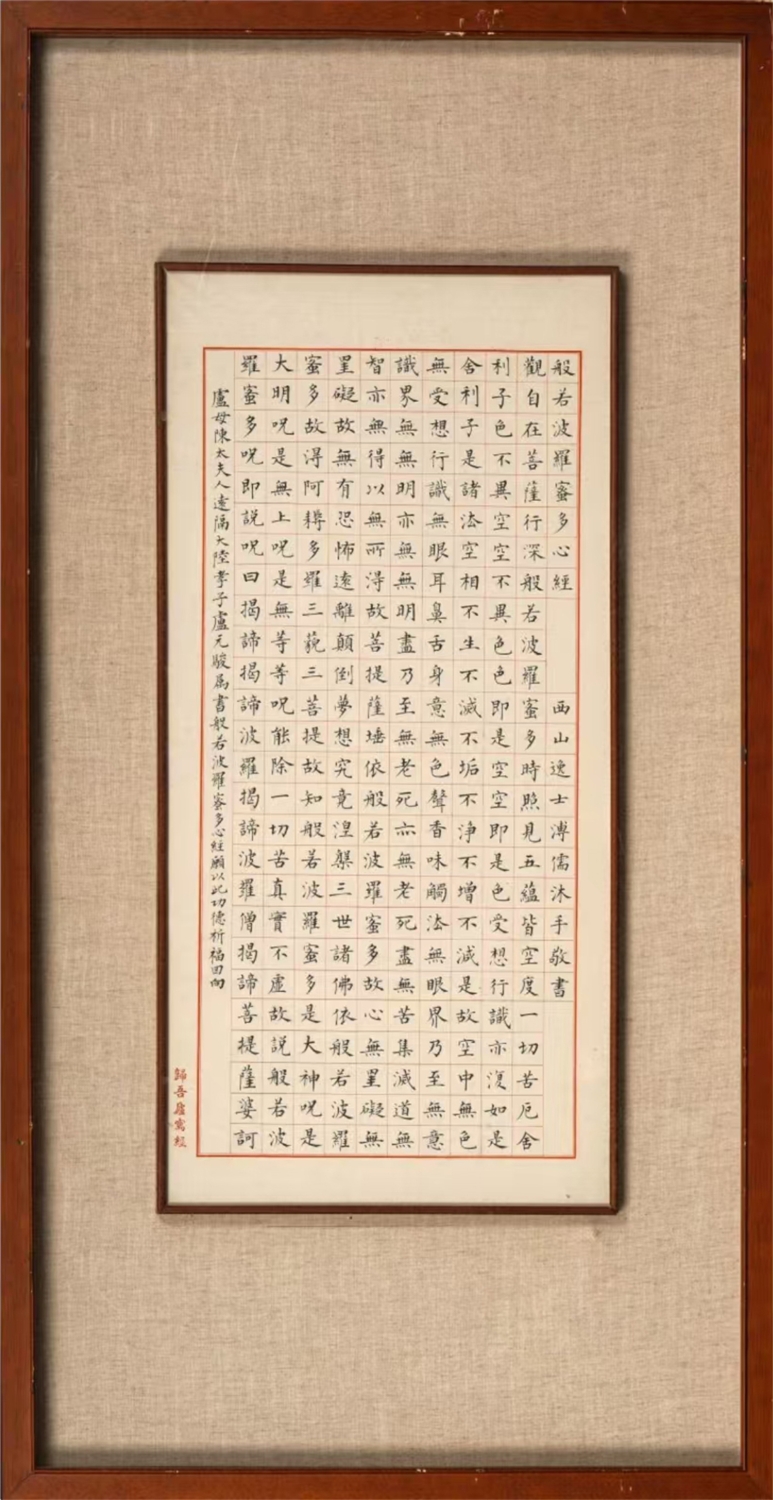 般若波羅蜜多心經　西山逸士溥儒沐手敬書
觀自在菩薩行深般若波羅蜜多時照見五蘊皆空度一切苦厄舍
利子色不異空空不異色色即是空空即是色受想行識亦復如是
舍利子是諸法空相不生不滅不垢不淨不增不減是故空中無色
無受想行識無眼耳鼻舌身意無色聲香味觸法無眼界乃至無意
識界無無明亦無無明盡乃至無老死亦無老死盡無苦集滅道無
智亦無得以無所得故菩提薩埵依般若波羅蜜多故心無罣礙無
罣礙故無有恐怖遠離顛倒夢想究竟涅槃三世諸佛依般若波羅
蜜多故得阿耨多羅三藐三菩提故知般若波羅蜜多是大神呪是
大明呪是無上呪是無等等呪能除一切苦真實不虛故説般若波
羅蜜多呪即説呪曰揭諦揭諦波羅揭諦波羅僧揭諦菩提薩婆訶
盧母陳太夫人遠隔大陸孝子盧元駿属書般若波羅蜜多心經願以此功德祈福回向
歸吾廬寫經